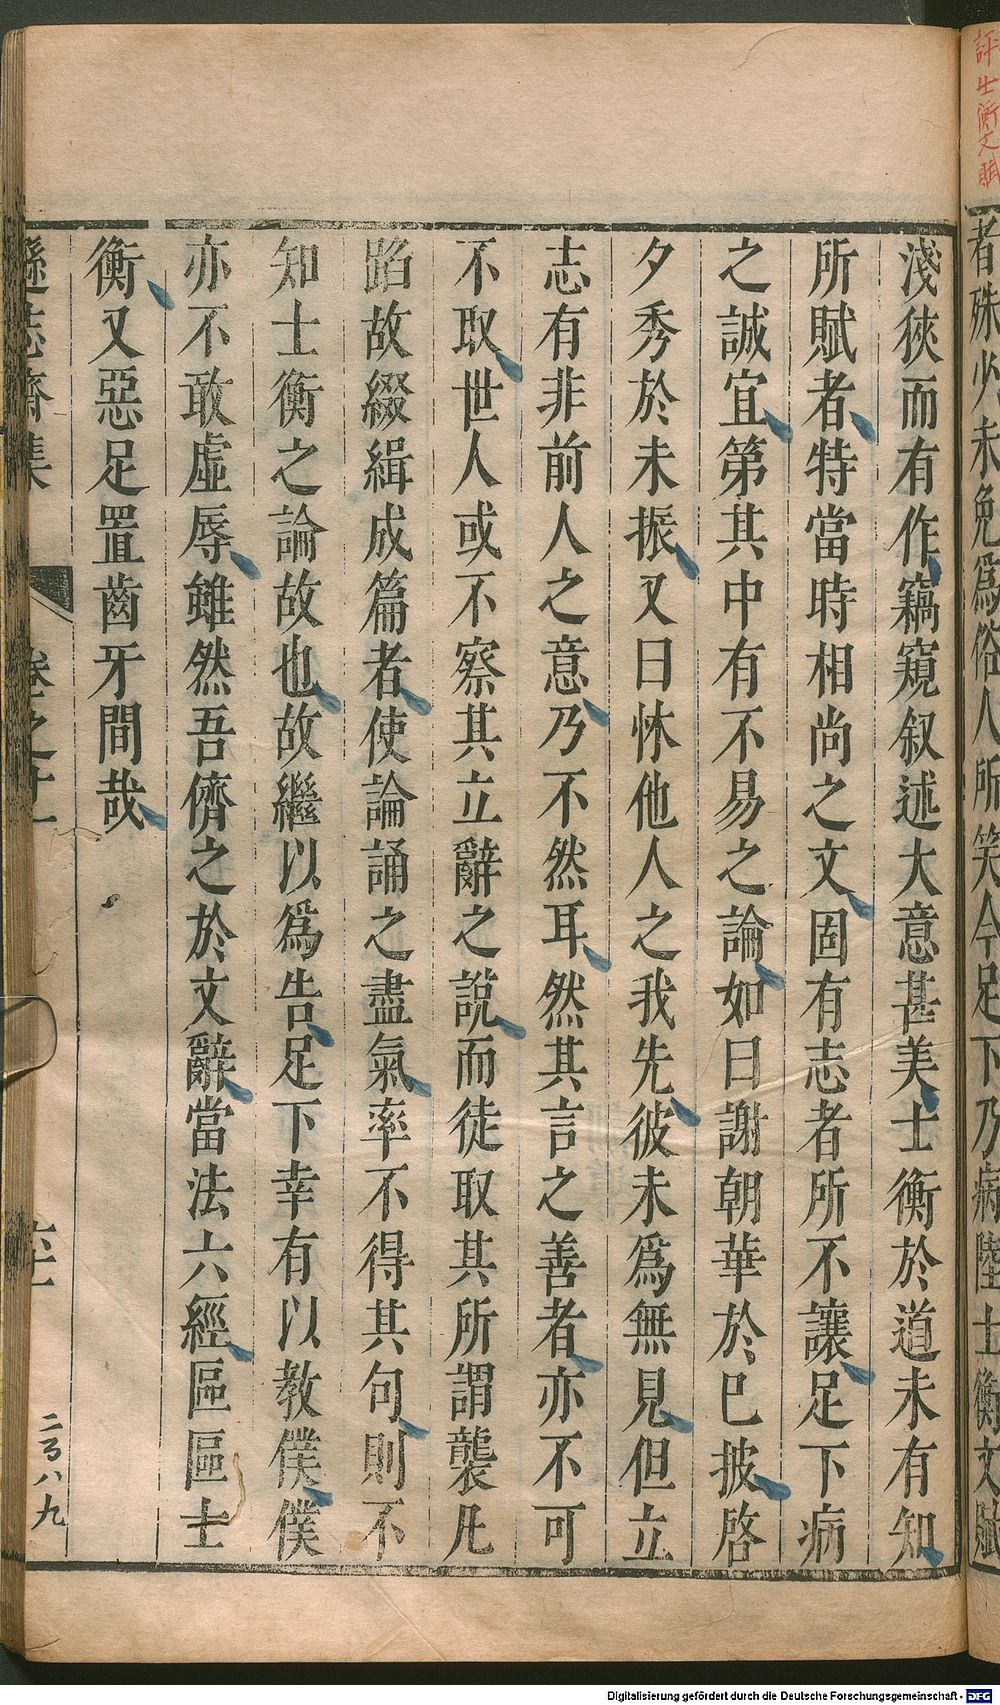 評士衡文賦
者殊少未免爲俗人所笑今足下乃病陸士衡文賦
淺狹而有作竊窺叙述大意甚美士衡於道未有知
所賦者特當時相尚之文固有志者所不讓足下病
之誠宜第其中有不易之論如曰謝朝華於已披啓
夕秀於未振又曰怵他人之我先彼未爲無見但立
志有非前人之意乃不然耳然其言之善者亦不可
不取世人或不察其立辭之說而徒取其所謂襲凡
蹈故綴緝成篇者使論誦之盡氣率不得其句則不
知士衡之論故也故繼以爲告足下幸有以教僕僕
亦不敢虛辱雖然吾儕之於文辭當法六經區區士
衡又惡足置齒牙間哉
遜志齋集
卷之十一
二百八九
Digitalisierung gefördert durch die Deutsche Forschungsgemeinschaft - DFG